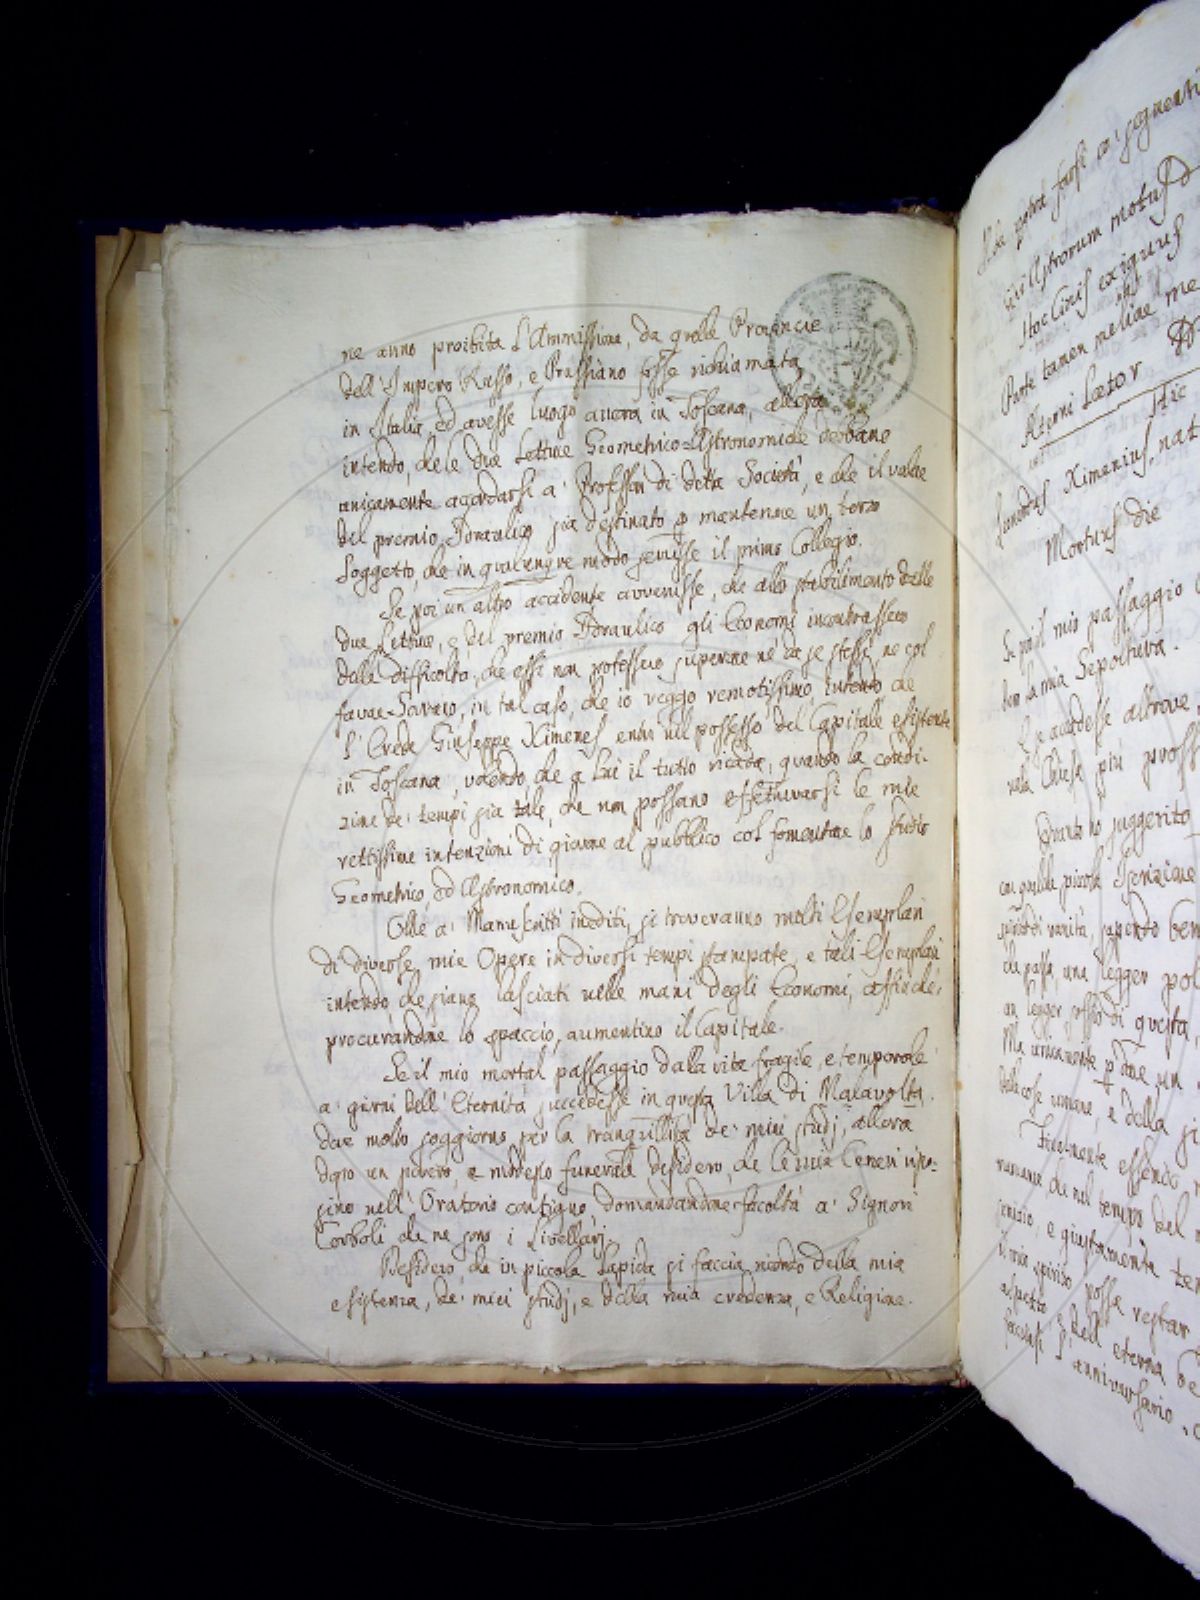 ne anno proibita l'Ammissione, da quelle Provincie
dell'Impero Russo, e Prussiano fosse richiamata
in Italia, ed avesse luogo ancora in Toscana, allora
intendo, che le due Letture Geometrico=Astronomiche debbano
unicamente accordarsi a' Professori di detta Società, e che il valore
del premio Idraulico già destinato p mantenere un terzo
Soggetto, che in qualunque modo servisse il primo Collegio.
Se poi un altro accidente avvenisse, che allo stabilimento delle
due Letture, e del premio Idraulico gli Economi incontrassero
delle difficoltà, che essi non potessero superare nè da se stessi, ne col
favor Sovrano, in tal caso, che io veggo remotissimo intendo che
l'Erede Giuseppe Ximenes entri nel possesso del Capitale esistente
in Toscana, volendo, che a lui il tutto ricada, quando la condi-
zione de' tempi sia tale, che non possano effettuarsi le mie
rettissime intenzioni di giovare al pubblico col fomentare lo studio
Geometrico, ed Astronomico.
Oltre a' Manuscritti inediti, si troveranno molti Esemplari
di diverse mie Opere in diversi tempi stampate, e tali Esemplari
intendo, che siano lasciati nelle mani degli Economi, affinchè,
procurandone lo spaccio, aumentino il Capitale.
Se il mio mortal passaggio dalla vita fragile, e temporale
a' giorni dell'Eternità succedesse in questa Villa di Malavolta,
dove molto soggiorno per la tranquillità de' miei studj, allora
dopo un povero, e modesto funerale desidero, che le mie Ceneri ripo=
sino nell'Oratorio contiguo domandandone facoltà a' Signori
Corboli che ne sono i Livellarj.
Desidero che in piccola Lapida si faccia ricordo della mia
esistenza, de' miei studj, e della mia credenza, e Religione.
potrà farsi co' seguenti
Astrorum motus
Hoc Cinis exiguus
Parte tamen meliae me
Aterni Lætor
Hic
Leonardus Ximenius, nat
Mortuus die
Se poi il mio passaggio
la mia Sepoltura.
E se accadesse altrove,
nella Chiesa più pross
Quanto ho suggerito
con qualche piccola Iscrizione
di vanità, sapendo ben
che passa, una legger pol
un legger soffio di questa,
Ma unicamente p dare un
delle cose umane, e della
Finalmente essendo
che nel tempo del
e giustamente te
il mio spirito possa restar
aspetto dell'eterna be
anniversario.